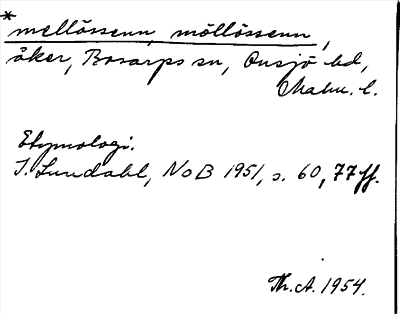 *mellössenn, möllössenn,
åker, Bosarps sn, Onsjö hd,
Malm. l.
Etymologi.
I. Lundahl, NoB 1951, s. 60, 77 ff.
Th. A. 1954.